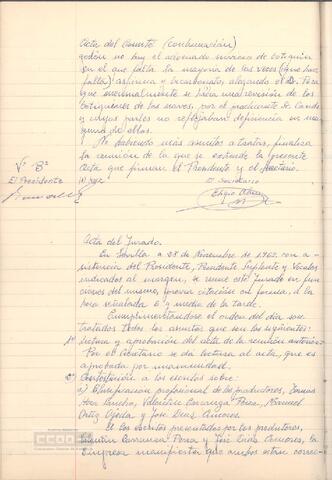 Acta del Jurado (continuación)
no hay el adecuado servicio de botiquín
en el que falta la mayoría de las veces (que hace
falta) aspirina y bicarbonato, alegando el Dr.
que mensualmente se hacía una revisión de los
botiquines de las naves, por el practicante Sr.
y cuyos partes no reflejaban deficiencia en ninguna
de ellos.
No habiendo más asuntos a tratar, finaliza
la reunión de la que se extiende la presente
Acta que firman el Presidente y el Secretario.
Vº Bº
El Presidente
El Secretario
Acta del Jurado.
En Sevilla a 28 de Noviembre de 1.962, con asistencia
del Presidente, Presidente Suplente y Vocales
indicados al margen, se reune este Jurado en funciones
del mismo, previa citación en forma, a la
hora señalada 6 y media de la tarde.
Cumplimentándose el orden del día son
tratados todos los asuntos que son los siguientes:
1º Lectura y aprobación del acta de la reunión anterior.
Por el Secretario se da lectura al acta, que es
aprobada por unanimidad.
2º Contestación a los escritos sobre:
a) Clasificación profesional de los productores,
Sancho, Valentín Carranza Pérez, Manuel
Ortiz Ojeda y José Amores.
A los escritos presentados por los productores,
Valentín Carranza y José Amores, la
Empresa manifiesta que ambos están
CCOO